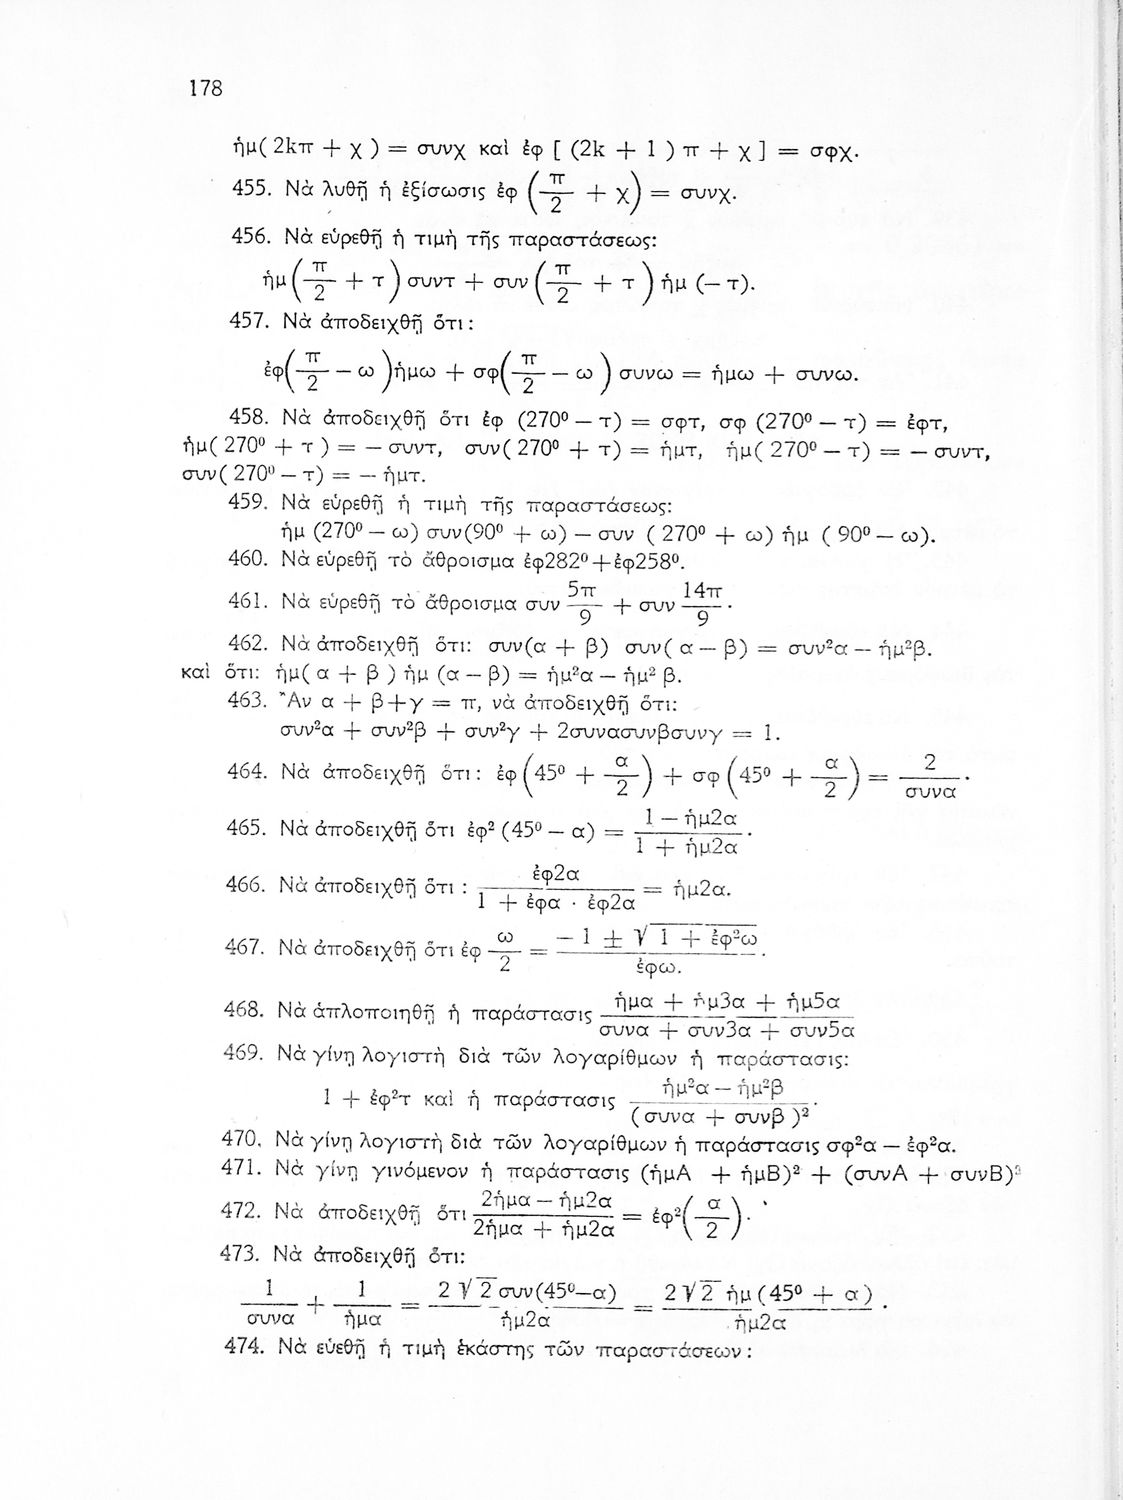 178
ἡμ( 2kπ + χ ) = συνχ καὶ ἐφ [ (2k + 1 ) π + χ ] = σφχ.
455. Νὰ λυθῇ ἡ ἐξίσωσις ἐφ (π/2 + χ) = συνχ.
456. Νὰ εὑρεθῇ ἡ τιμὴ τῆς παραστάσεως:
ἡμ (π/2 + τ) συντ + συν (π/2 + τ) ἡμ (− τ).
457. Νὰ ἀποδειχθῇ ὅτι :
ἐφ(π/2 − ω)ἡμω + σφ(π/2 − ω) συνω = ἡμω + συνω.
458. Νὰ ἀποδειχθῇ ὅτι ἐφ (270⁰ − τ) = σφτ, σφ (270⁰ − τ) = ἐφτ,
ἡμ( 270⁰ + τ ) = − συντ, συν( 270⁰ + τ) = ἡμτ, ἡμ( 270⁰ − τ) = − συντ,
συν( 270⁰ − τ) = − ἡμτ.
459. Νὰ εὑρεθῇ ἡ τιμὴ τῆς παραστάσεως:
ἡμ (270⁰ − ω) συν(90⁰ + ω) − συν ( 270⁰ + ω) ἡμ ( 90⁰ − ω).
460. Νὰ εὑρεθῇ τὸ ἄθροισμα ἐφ282⁰+ἐφ258⁰.
461. Νὰ εὑρεθῇ τὸ ἄθροισμα συν 5π/9 + συν 14π/9 .
462. Νὰ ἀποδειχθῇ ὅτι: συν(α + β) συν( α − β) = συν²α − ἡμ²β.
καὶ ὅτι: ἡμ( α + β ) ἡμ (α − β) = ἡμ²α − ἡμ² β.
463. Ἂν α + β+γ = π, νὰ ἀποδειχθῇ ὅτι:
συν²α + συν²β + συν²γ + 2συνασυνβσυνγ = 1.
464. Νὰ ἀποδειχθῇ ὅτι : ἐφ (45⁰ + α/2) + σφ (45⁰ + α/2) = 2/συνα .
465. Νὰ ἀποδειχθῇ ὅτι ἐφ² (45⁰ − α) = (1 − ἡμ2α)/(1 + ἡμ2α) .
466. Νὰ ἀποδειχθῇ ὅτι : ἐφ2α/(1 + ἐφα · ἐφ2α) = ἡμ2α.
467. Νὰ ἀποδειχθῇ ὅτι ἐφ ω/2 = (− 1 ± √(1 + ἐφ²ω))/ἐφω. .
468. Νὰ ἁπλοποιηθῇ ἡ παράστασις (ἡμα + ἡμ3α + ἡμ5α)/(συνα + συν3α + συν5α)
469. Νὰ γίνῃ λογιστὴ διὰ τῶν λογαρίθμων ἡ παράστασις:
1 + ἐφ²τ καὶ ἡ παράστασις (ἡμ²α − ἡμ²β)/(συνα + συνβ )² .
470. Νὰ γίνῃ λογιστὴ διὰ τῶν λογαρίθμων ἡ παράστασις σφ²α − ἐφ²α.
471. Νὰ γίνῃ γινόμενον ἡ παράστασις (ἡμΑ + ἡμΒ)² + (συνΑ + συνΒ)²
472. Νὰ ἀποδειχθῇ ὅτι (2ἡμα − ἡμ2α)/(2ἡμα + ἡμ2α) = ἐφ²(α/2).
473. Νὰ ἀποδειχθῇ ὅτι:
1/συνα + 1/ἡμα = 2 √2 συν(45⁰−α)/ἡμ2α = 2√2 ἡμ (45⁰ + α)/ἡμ2α .
474. Νὰ εὑεθῇ ἡ τιμὴ ἑκάστης τῶν παραστάσεων :